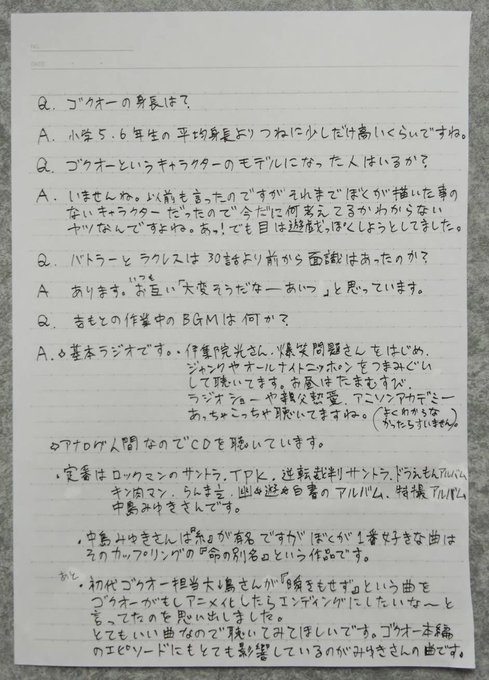 NO.
DATE
Q. ゴクオーの身長は?
A. 小学5.6年生の平均身長よりつねに少しだけ高いくらいですね。
Q. ゴクオーというキャラクターのモデルになった人はいるか?
A. いませんね。以前も言ったのですがそれまでぼくが描いた事の
ないキャラクターだったので今だに何考えてるかわからない
ヤツなんですよね。あっ!でも目は遊戯っぽくしようとしてました。
Q. バトラーとラクレスは30話より前から面識はあったのか?
A あります。いつもお互い「大変そうだなーあいつ」と思っています。
Q. 吉もとの作業中のBGMは何か?
A. ◇基本ラジオです。・伊集院光さん、爆笑問題さんをはじめ、
ジャンクやオールナイトニッポンをつまみぐい
して聴いてます。お昼はたまむすび、
ラジオショーや親父熱愛、アニソンアカデミー
あっちゃこっちゃ聴いてますね。(よくわからな
かったらすいません。)
◇アナログ人間なのでCDを聴いています。
・定番はロックマンのサントラ、TPK、逆転裁判サントラ、ドラえもんアルバム
キン肉マン、らんま1/2、幽々遊々白書のアルバム、特撮アルバム
中島みゆきさんです。
・中島みゆきさんは『糸』が有名ですがぼくが1番好きな曲は
そのカップリングの『命の別名』という作品です。
あと
・初代ゴクオー担当大島さんが『瞬きもせず』という曲を
ゴクオーがもしアニメ化したらエンディングにしたいな〜と
言ってたのを思い出しました。
とてもいい曲なので聴いてみてほしいです。ゴクオー本編
のエピソードにもとても影響しているのがみゆきさんの曲です。